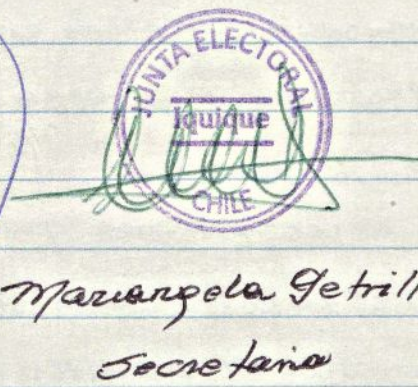 JUNTA ELECTORAL
Iquique
CHILE
Mariangela Petrill
Secretaria